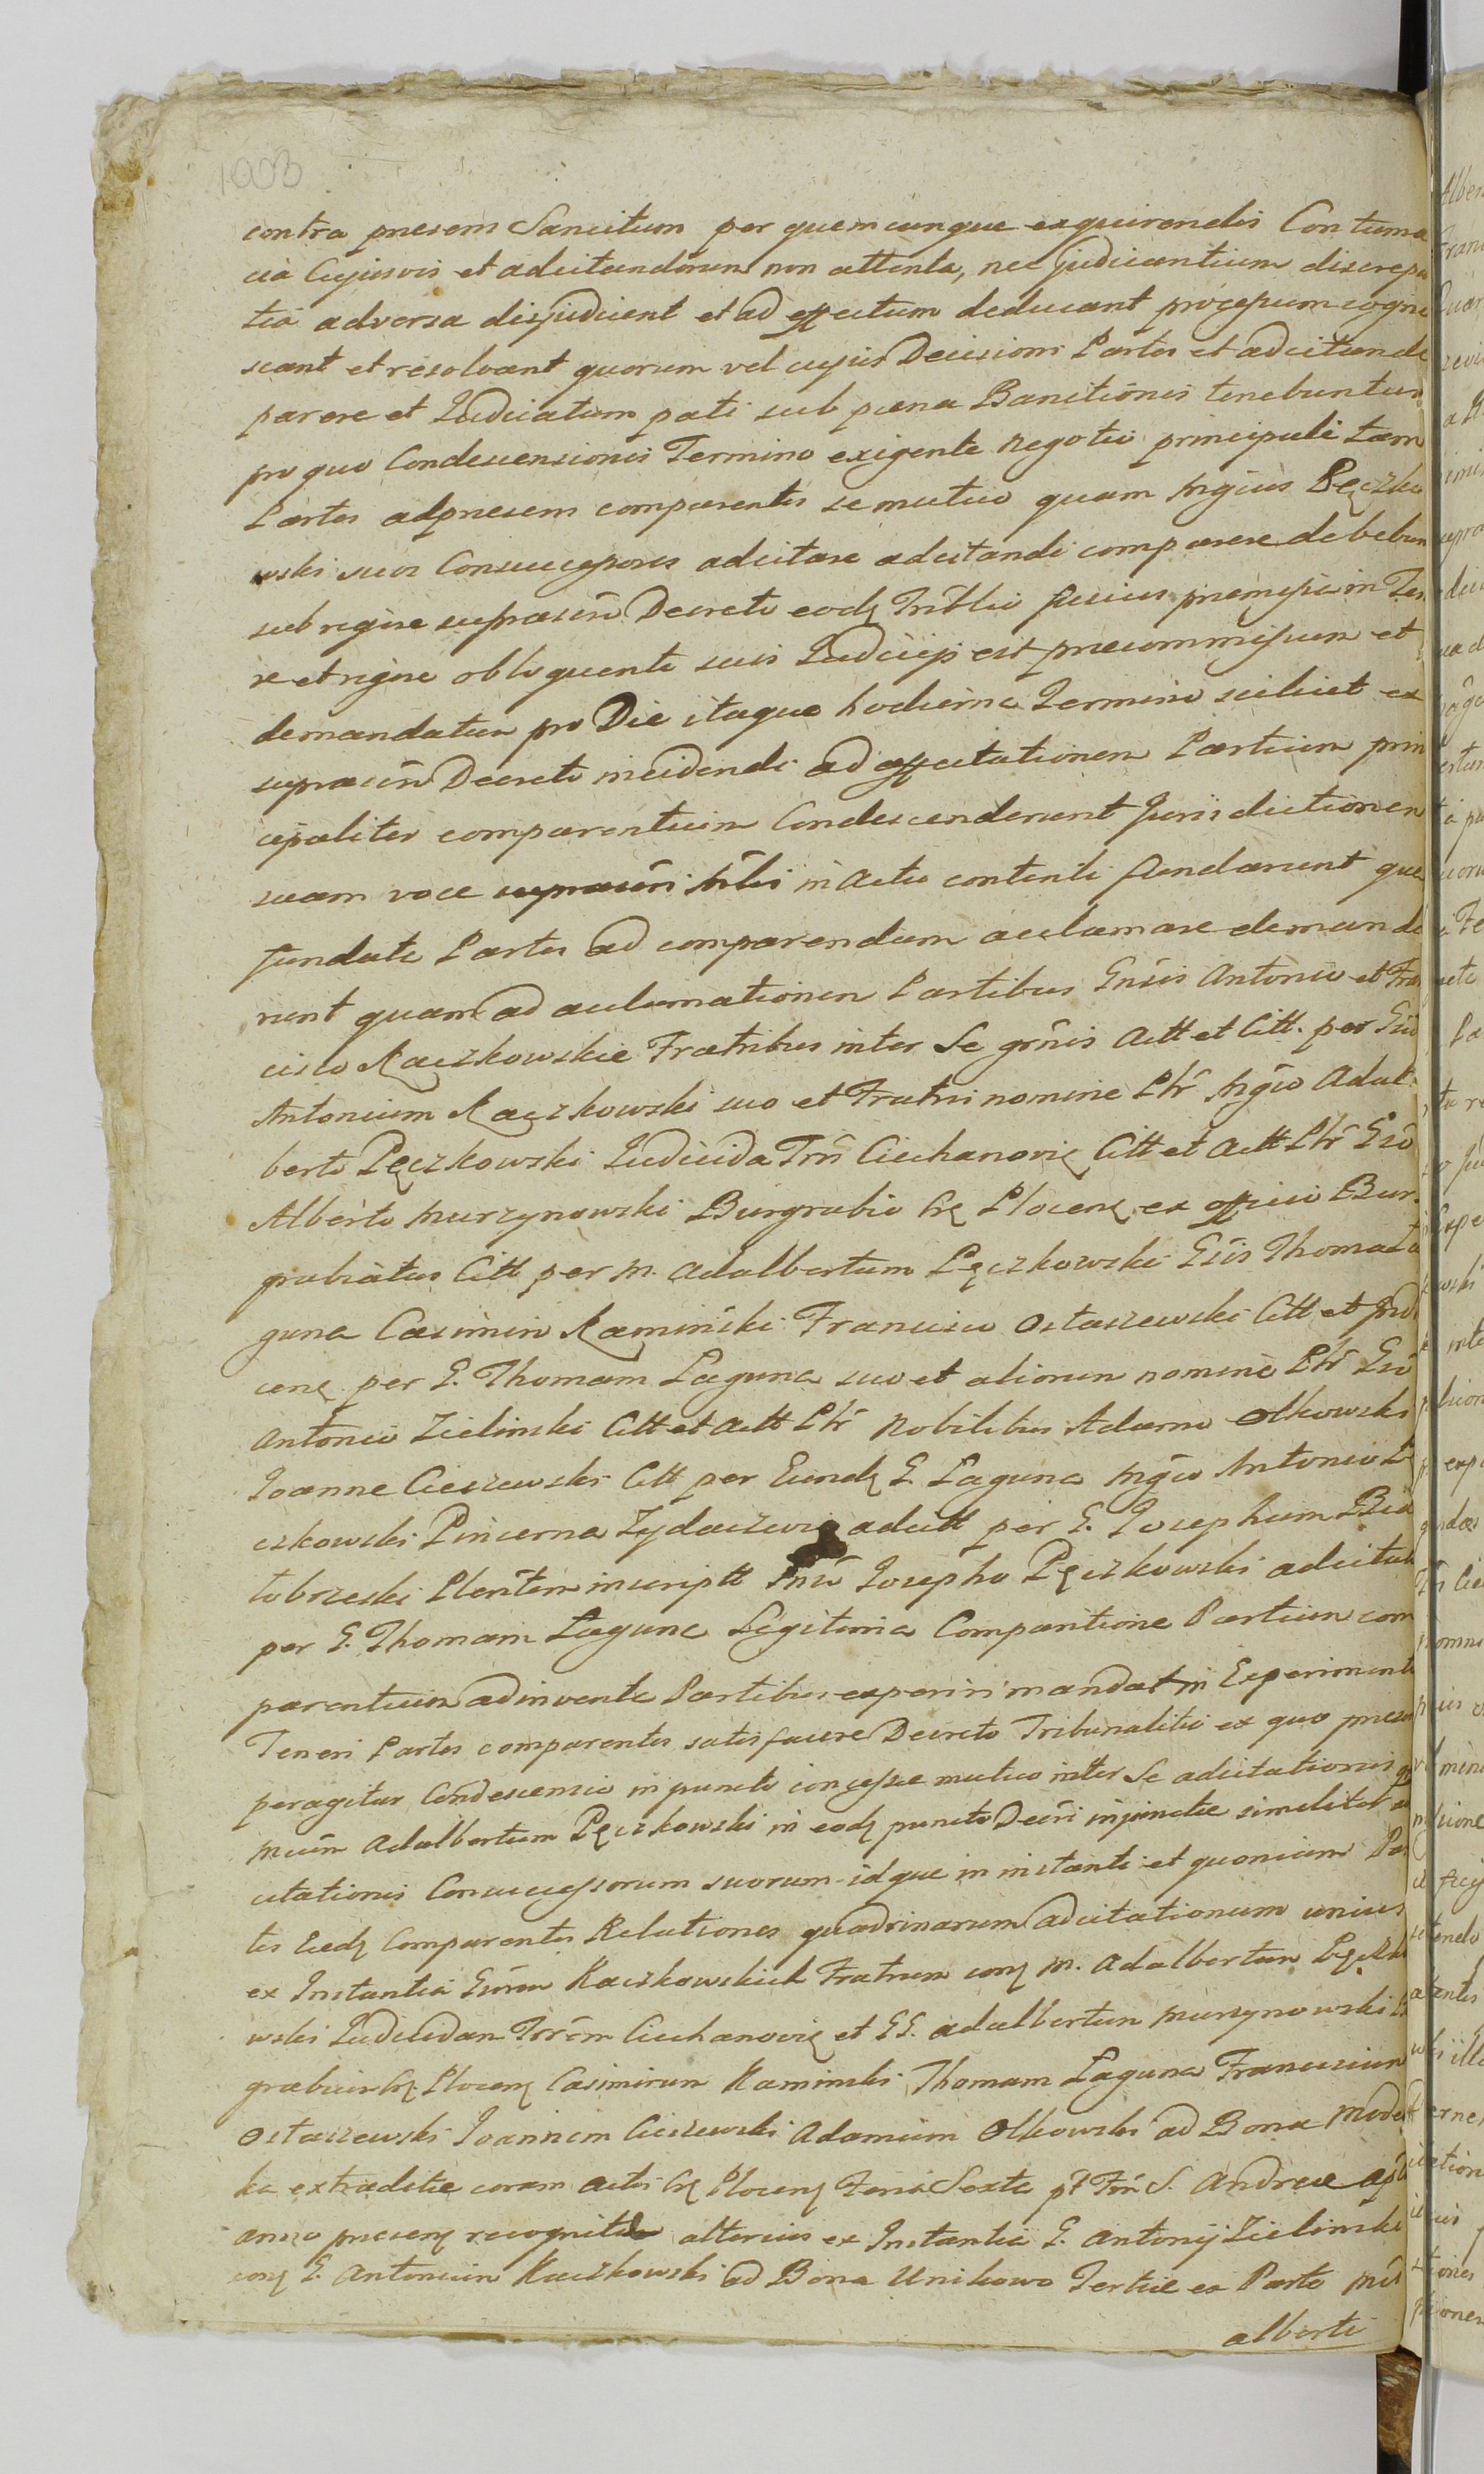 1003
contra presens Sancitum per quemcunque exquirendis Contuma
cia Cujusvis et adcitandorum non attenta, nec Judicantium discrepa
tia adversa disjudicent et ad effectum deducant processum cogno
scant et resolvant quorum vel cujus Decisioni Partes et adcitandi
parere et Judicatum pati sub poena Bannitionis tenebuntur
pro quo Condescensionis Termino exigente negotio principali tam
Partes ad presens comparentes se mutuo quam Mgcus Pęczko
wski suos Consuccessores adcitare adcitandi comparere debebun
sub rigore suprascri Decreti eodq Triblio fusius premissa in Teno
re et rigore obloquente suis Judicijs est precommissum et
demandatum pro Die itaque hodierna Termino scilicet ex
suprascri Decreto incidenti ad affectationem Partium prin
cipaliter comparentium Condescenderunt Jurisdictionem
suam voce suprascri Mlis in Actu contenti fundarunt qua
fundata Partes ad comparendum acclamare demanda
runt quam ad acclamationem Partibus Gnsis Antonio et Fran
cisco Kaczkowskie Fratribus inter Se grnis Actt et Citt. per Gsu
Antonium Kaczkowski suo et Fratris nomine Phr Mgco Adal
berto Pęczkowski Judicida Trri Ciechanovię Citt et Actt Phr Gso
Alberto Murzynowski Burgrabio Crę Plocenę ex officio Bur
grabiatus Citt per M. Adalbertum Pęczkowski Gsis Thoma La
guna Casimiro Kamiński Francisco Ostaszewski Citt et
cenę per G. Thomam Laguna suo et aliorum nomine Phr Gso
Antonio Zielinski Citt et Actt Phr Nobilibus Adamo Olkowski
Joanne Cieszewski Citt per Eundę G. Laguna Mgco Antonio Pę
czkowski Pincerna Zydaczovię adcitt per G. Josephum Bia
łobrzeski Plentem inscriptt Gnso Josepho Pęczkowski adcitat
per G. Thomam Laguna Legitima Comparitione Partium com
parentium adinventa Partibus experiri mandat in Experimento
Teneri Partes comparentes satisfacere Decreto Tribunalitio ex quo presen
peragitur Condescensio in puncto concessae mutuo inter Se adcitationis
Mcum Adalbertum Pęczkowski in eodę puncto Decri injunctae similiter ad
citationis Consuccessorum suorum idque in instanti et quoniam Par
tes Eaedę Comparentes Relationes quadrinarum adcitationum unius
ex Instantia Gsrum Kaczkowskich Fratrum conę M. Adalbertum Pęczko
wski Judicidam Trrem Ciechanovię et GG. Adalbertum Murzynowski Bur
grabium Crę Plocenę Casimirum Kaminski Thomam Laguna Franciscum
Ostaszewski Joannem Cieszewski Adamum Olkowski ad Bona Model
ka extraditae coram Actis Crę Plocenę Feria Sexta pt Fm S. Andreae Aptli
anno presenę recognitae alterius ex Instantia G. Antonij Zielinski
conę G. Antonium Kaczkowski ad Bona Unikowo Tertiae ex Parte
alberti